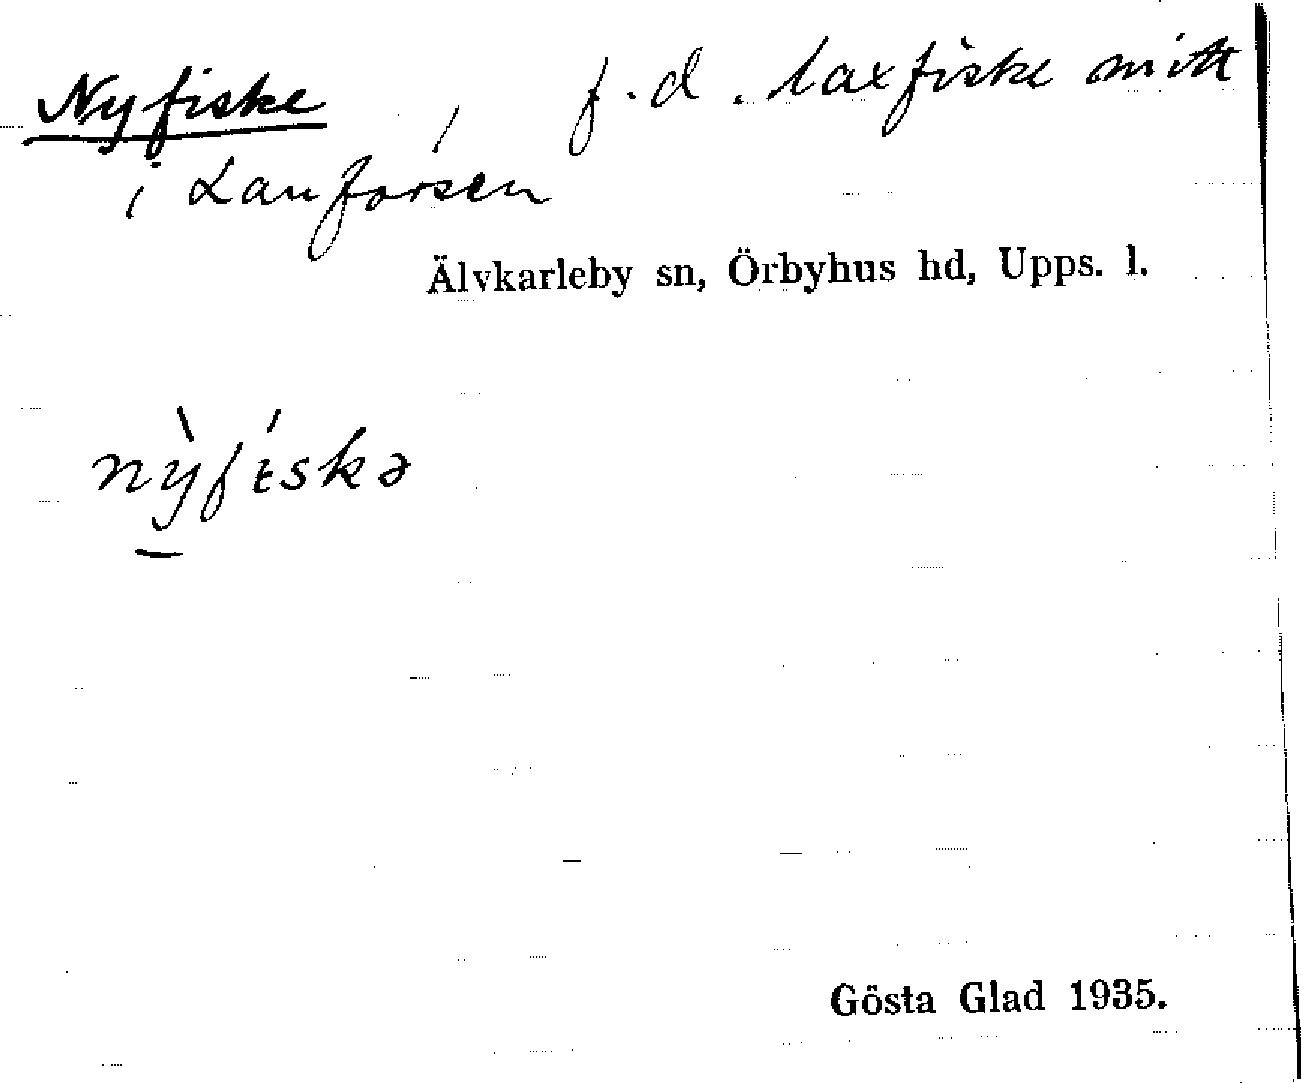 Nyfiske, f.d. laxfiske mitt
i Lanforsen
Älvkarleby sn, Örbyhus hd, Upps. l.
nỳ̠fɩ́skə
Gösta Glad 1935.